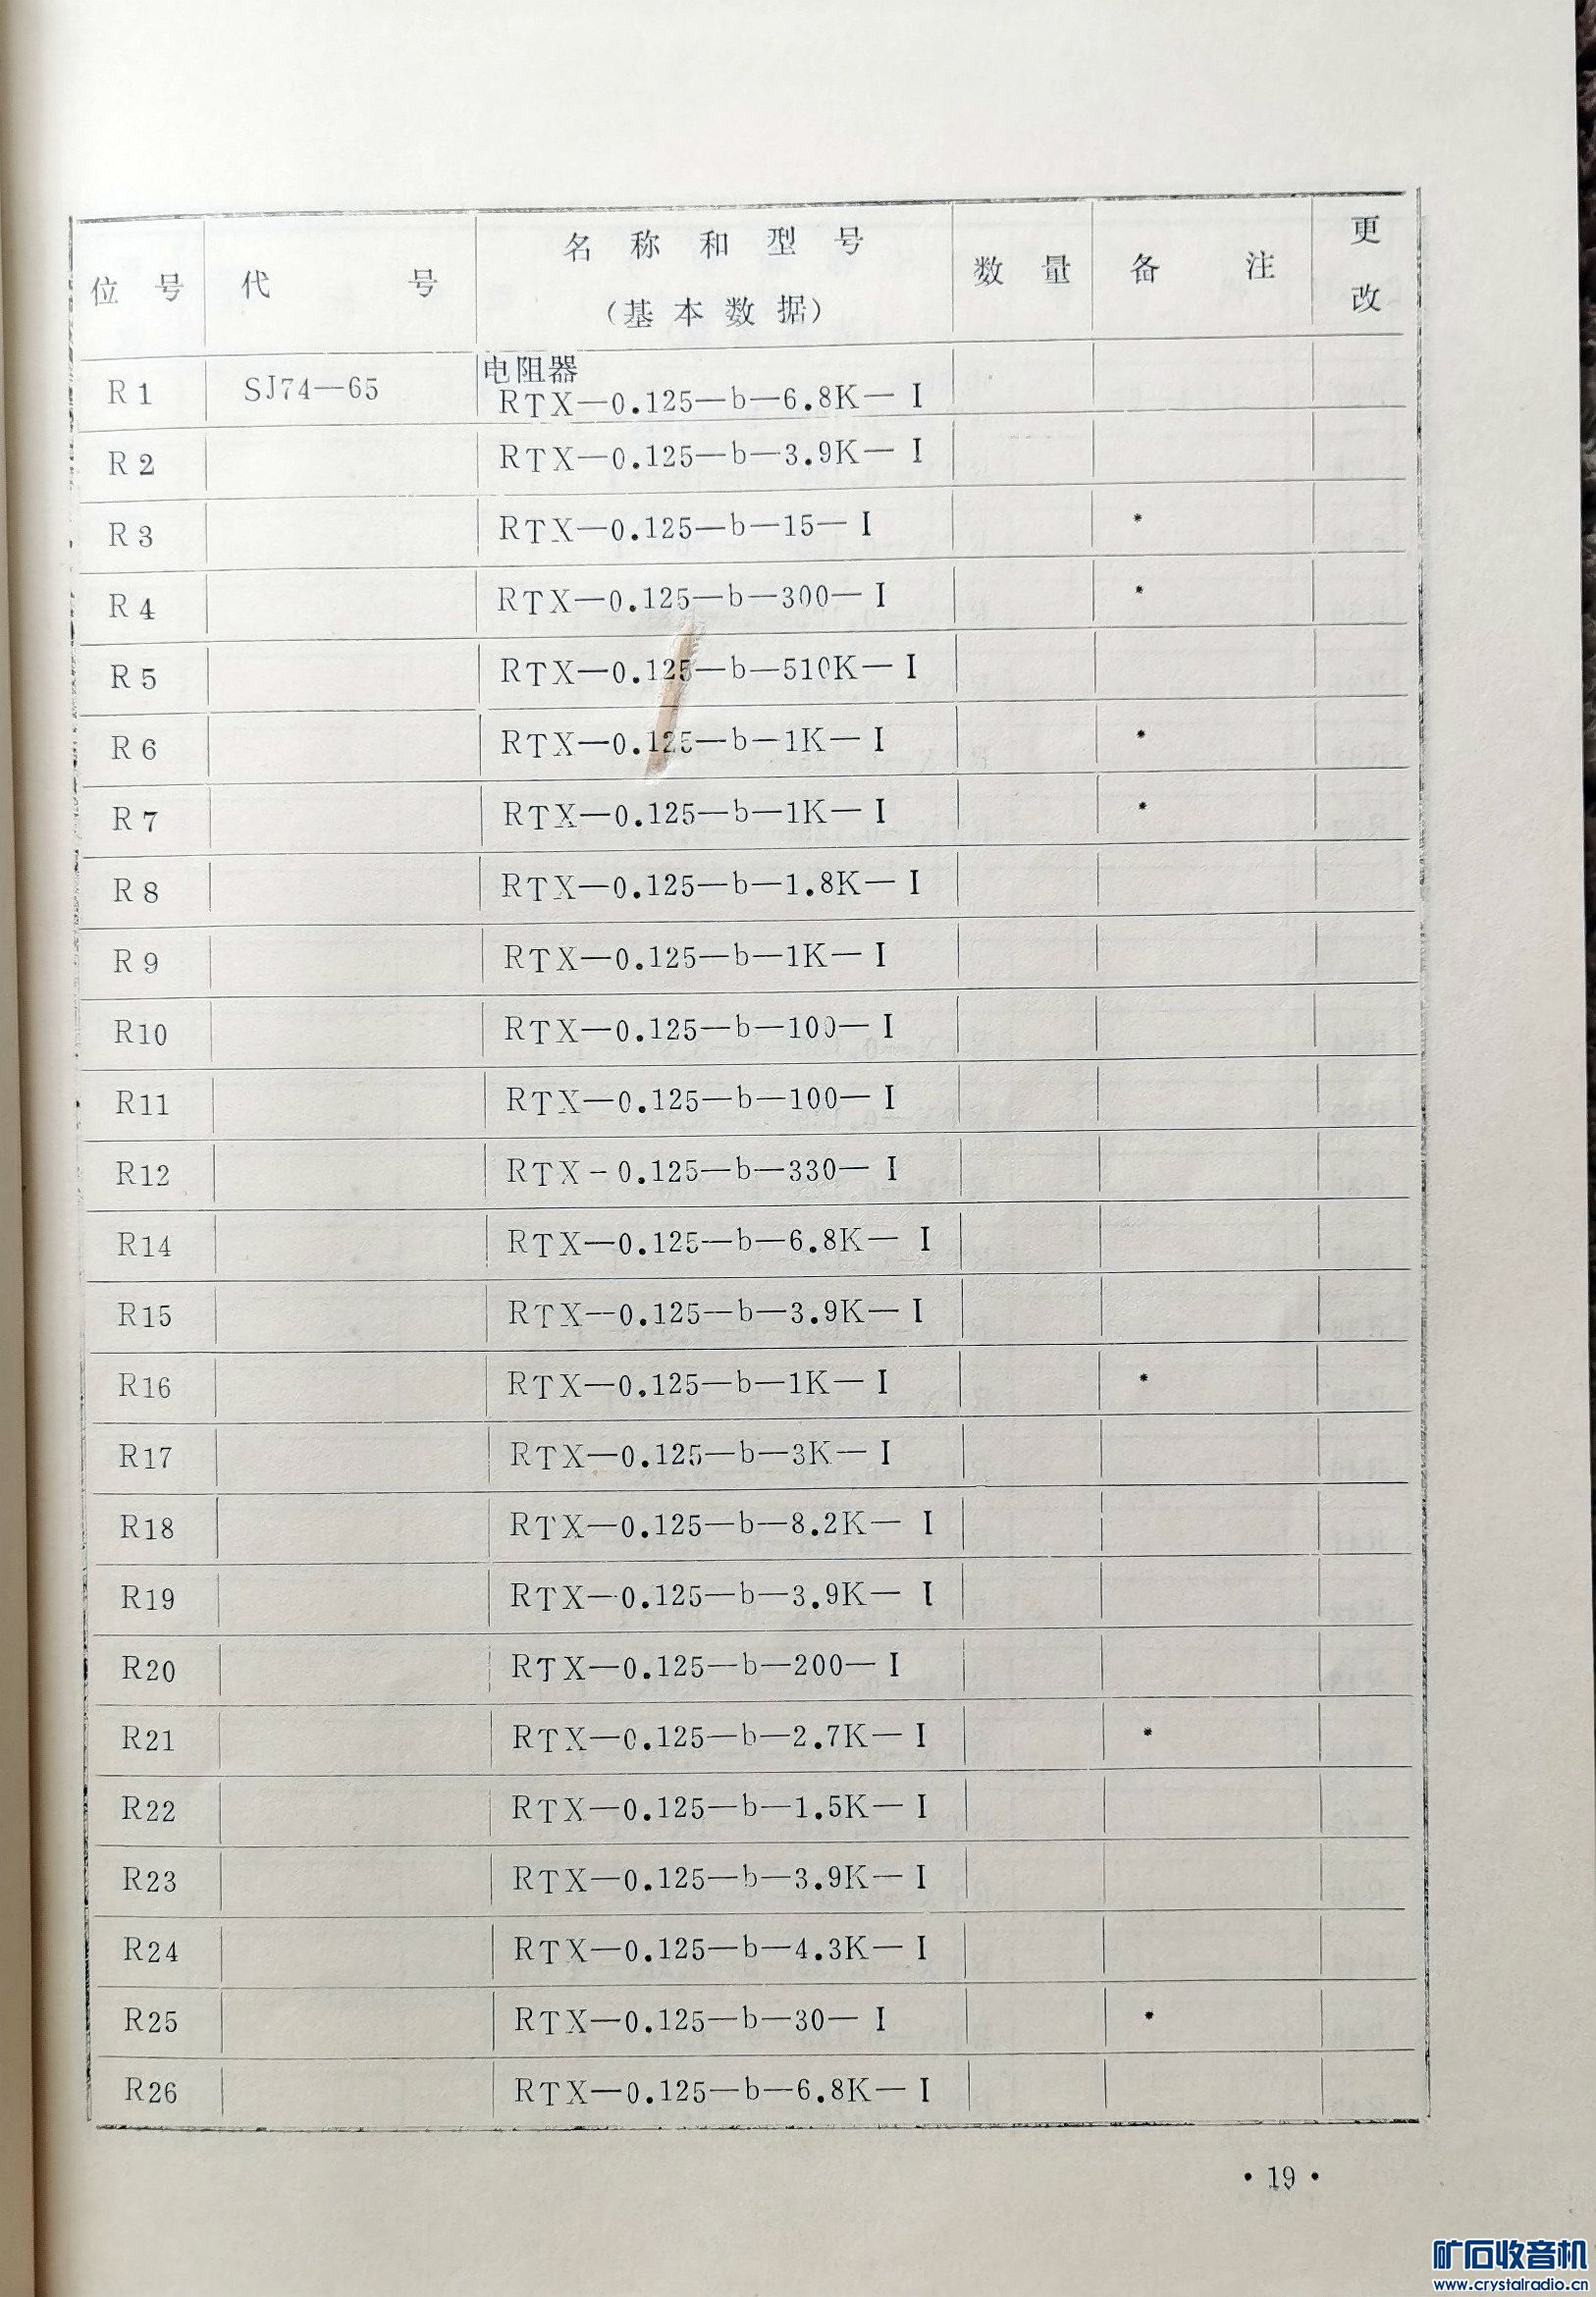 位 号 代 号 名 称 和 型 号 (基 本 数 据) 数 量 备 注 更 改
R1 SJ74—65 电阻器
RTX—0.125—b—6.8K—I
R2 RTX—0.125—b—3.9K—I
R3 RTX—0.125—b—15—I *
R4 RTX—0.125—b—300—I *
R5 RTX—0.125—b—510K—I
R6 RTX—0.125—b—1K—I *
R7 RTX—0.125—b—1K—I *
R8 RTX—0.125—b—1.8K—I
R9 RTX—0.125—b—1K—I
R10 RTX—0.125—b—100—I
R11 RTX—0.125—b—100—I
R12 RTX-0.125—b—330—I
R14 RTX—0.125—b—6.8K—I
R15 RTX—0.125—b—3.9K—I
R16 RTX—0.125—b—1K—I *
R17 RTX—0.125—b—3K—I
R18 RTX—0.125—b—8.2K—I
R19 RTX—0.125—b—3.9K—I
R20 RTX—0.125—b—200—I
R21 RTX—0.125—b—2.7K—I *
R22 RTX—0.125—b—1.5K—I
R23 RTX—0.125—b—3.9K—I
R24 RTX—0.125—b—4.3K—I
R25 RTX—0.125—b—30—I *
R26 RTX—0.125—b—6.8K—I
·19·
矿石收音机
www.crystalradio.cn